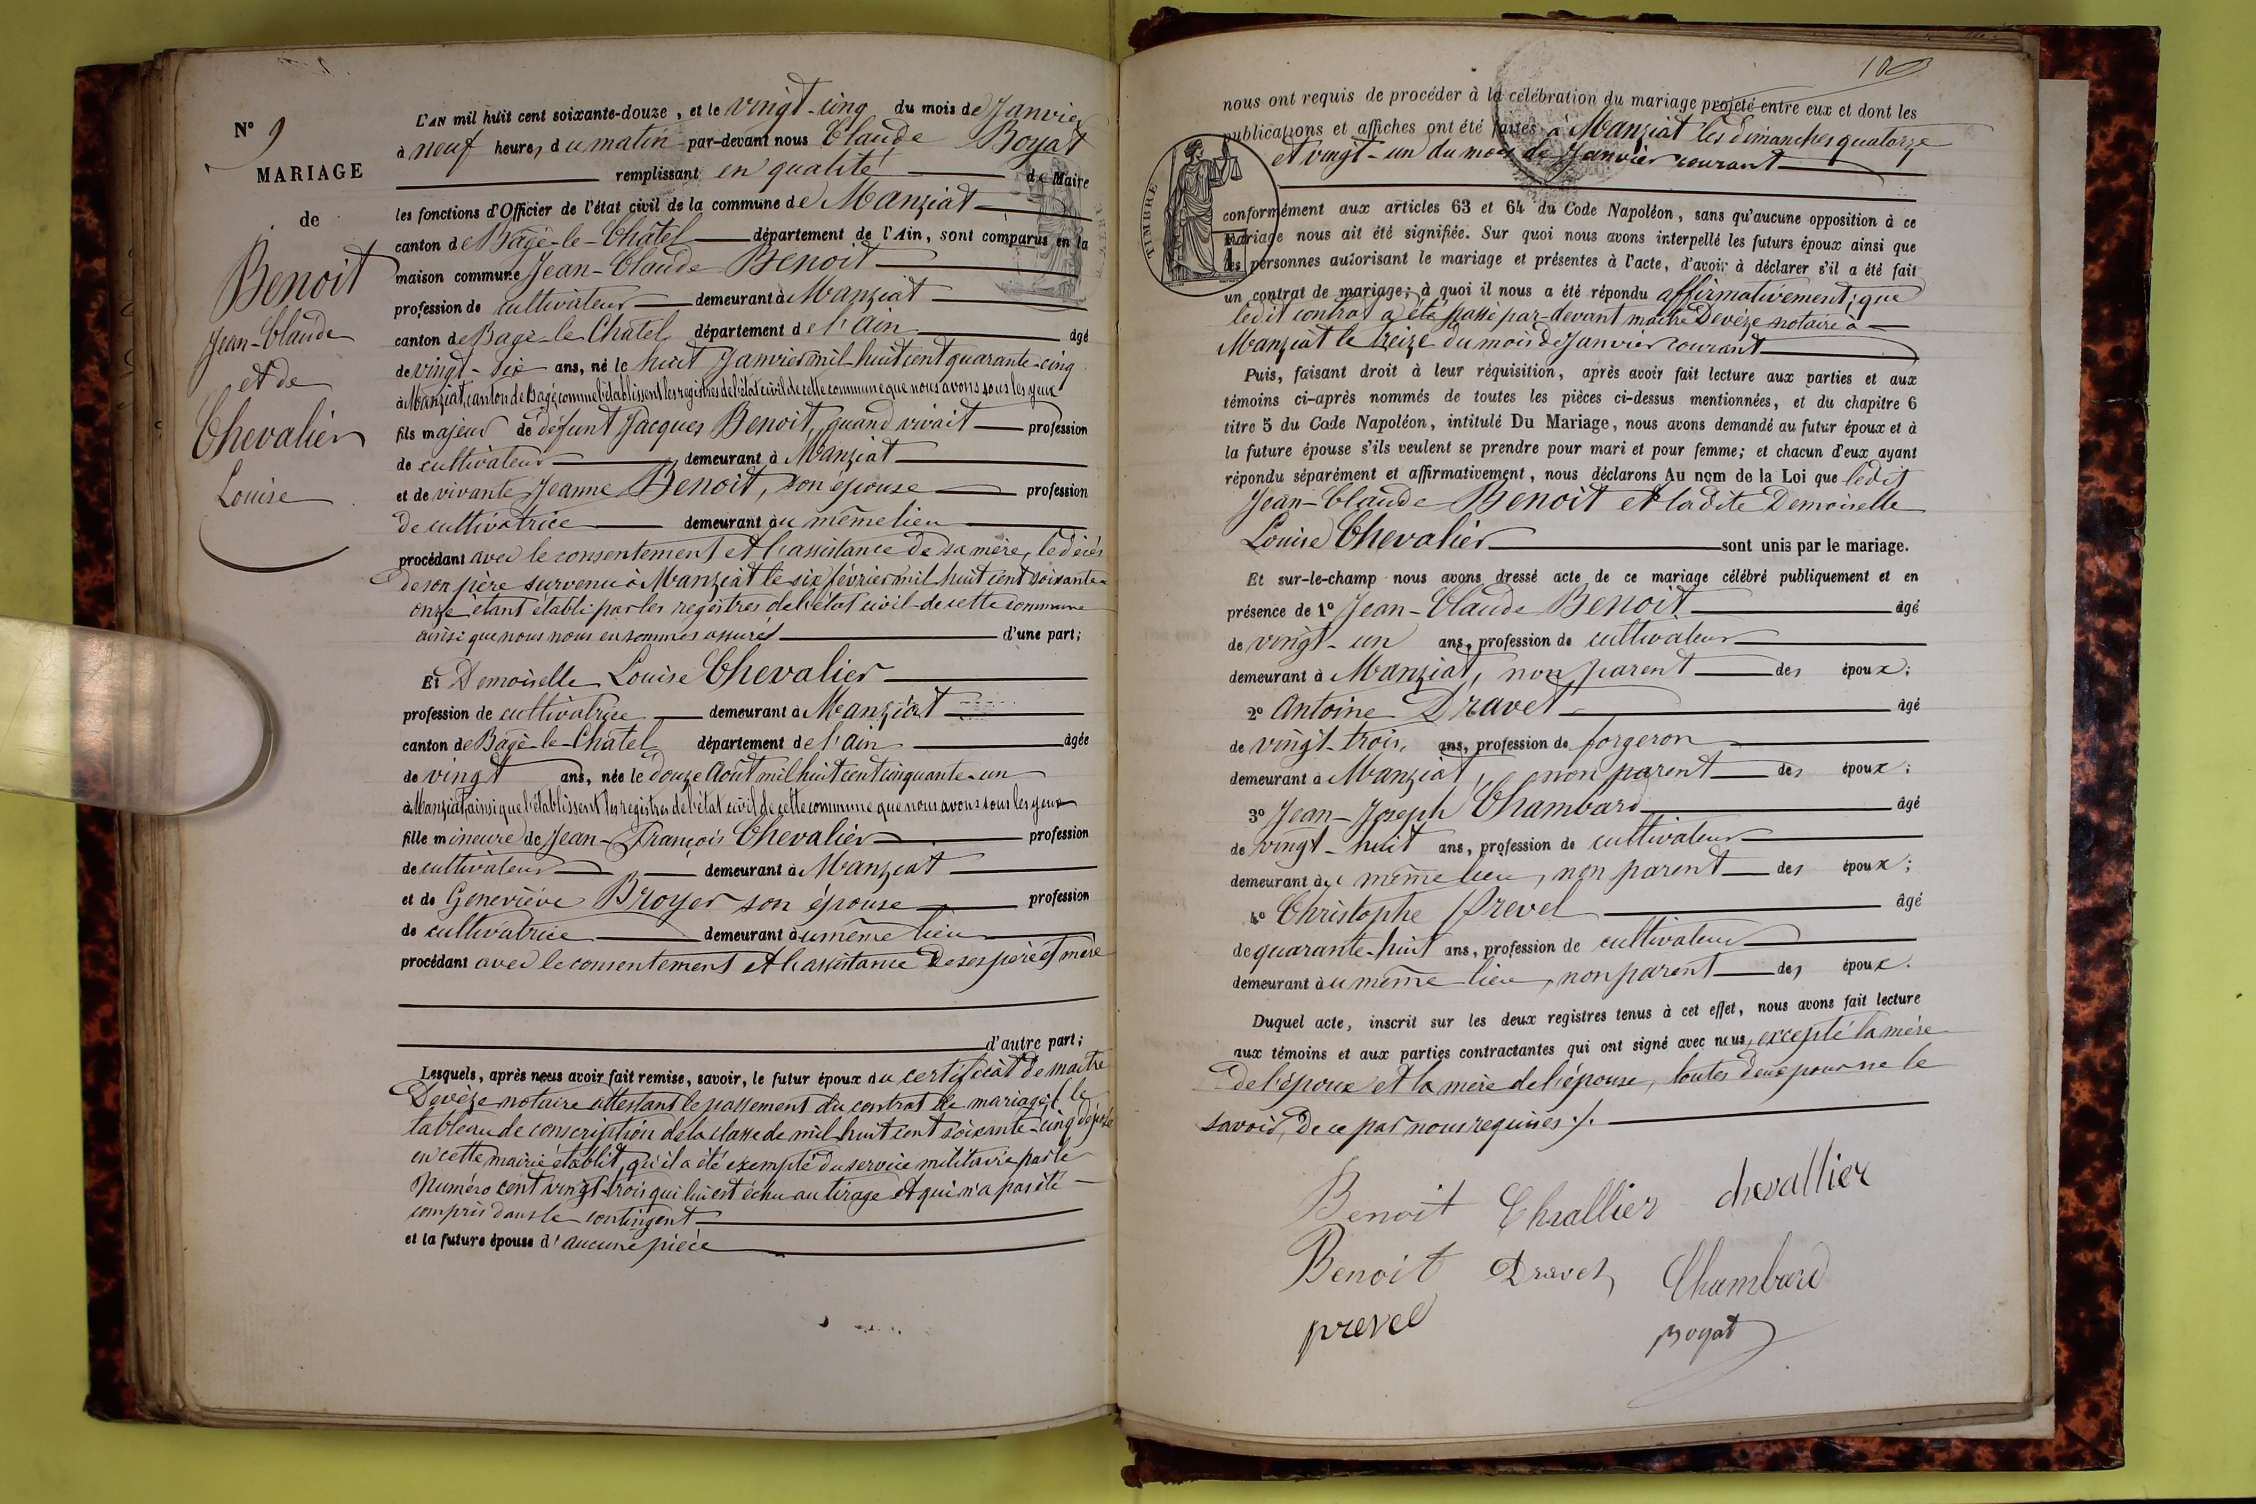 N° 9
MARIAGE
de
Benoit
Jean-Claude
et de
Chevalier
Louise
L'AN mil huit cent soixante-douze, et le vingt-cinq du mois de Janvier
à neuf heures du matin par-devant nous Claude Boyat
remplissant en qualité de Maire
les fonctions d'Officier de l'état civil de la commune de Manziat
canton de Bâgé-le-Châtel département de l'Ain, sont comparus en la
maison commune Jean-Claude Benoit
profession de cultivateur demeurant à Manziat
canton de Bagé-le-Chatel département de l'Ain âgé
de vingt-six ans, né le huit Janvier mil huit cent quarante-cinq
à Manziat, canton de Bagé, comme l'établissent les registres de l'état civil de cette commune que nous avons sous les yeux
fils majeur de défunt Jacques Benoit, quand vivait profession
de cultivateur demeurant à Manziat
et de vivante Jeanne Benoit, son épouse profession
de cultivatrice demeurant au même lieu
procédant avec le consentement et l'assistance de sa mère, le décès
de son père survenu à Manziat le six février mil huit cent soixante-
onze étant établi par les registres de l'état civil de cette commune
ainsi que nous nous en sommes assuré d'une part;
Et Demoiselle Louise Chevalier
profession de cultivatrice demeurant à Manziat
canton de Bagé-le-Chatel département de l'Ain âgée
de vingt ans, née le douze Août mil huit cent cinquante-un
à Manziat, ainsi que l'établissent les registres de l'état civil de cette commune que nous avons sous les yeux
fille mineure de Jean-François Chevalier profession
de cultivateur demeurant à Manziat
et de Geneviève Broyer son épouse profession
de cultivatrice demeurant au même lieu
procédant avec le consentement et l'assistance de ses père et mère
d'autre part;
Lesquels, après nous avoir fait remise, savoir, le futur époux du certificat de maître
Devèze notaire attestant le passement du contrat de mariage; le
tableau de conscription de la classe de mil huit cent soixante-cinq déposé
en cette mairie établit, qu'il a été exempté du service militaire par le
Numéro cent vingt-trois qui lui est échu au tirage et qui n'a pas été
compris dans le contingent
et la future épouse d'aucune pièce
109
nous ont requis de procéder à la célébration du mariage projeté entre eux et dont les
publications et affiches ont été faites à Manziat les dimanches quatorze
et vingt-un du mois de Janvier courant
TIMBRE
conformément aux articles 63 et 64 du Code Napoléon, sans qu'aucune opposition à ce
mariage nous ait été signifiée. Sur quoi nous avons interpellé les futurs époux ainsi que
les personnes autorisant le mariage et présentes à l'acte, d'avoir à déclarer s'il a été fait
un contrat de mariage; à quoi il nous a été répondu affirmativement; que
ledit contrat a été passé par-devant maître Devèze notaire à
Manziat le treize du mois de Janvier courant
Puis, faisant droit à leur réquisition, après avoir fait lecture aux parties et aux
témoins ci-après nommés de toutes les pièces ci-dessus mentionnées, et du chapitre 6
titre 5 du Code Napoléon, intitulé Du Mariage, nous avons demandé au futur époux et à
la future épouse s'ils veulent se prendre pour mari et pour femme; et chacun d'eux ayant
répondu séparément et affirmativement, nous déclarons Au nom de la Loi que ledit
Jean-Claude Benoit et ladite Demoiselle
Louise Chevalier sont unis par le mariage.
Et sur-le-champ nous avons dressé acte de ce mariage célébré publiquement et en
présence de 1° Jean-Claude Benoit âgé
de vingt-un ans, profession de cultivateur
demeurant à Manziat, non parent des époux;
2° Antoine Dravet âgé
de vingt-trois ans, profession de forgeron
demeurant à Manziat, non parent des époux;
3° Jean-Joseph Chambard âgé
de vingt-huit ans, profession de cultivateur
demeurant au même lieu, non parent des époux;
4° Christophe Prevel âgé
de quarante-huit ans, profession de cultivateur
demeurant au même lieu, non parent des époux.
Duquel acte, inscrit sur les deux registres tenus à cet effet, nous avons fait lecture
aux témoins et aux parties contractantes qui ont signé avec nous, excepté la mère
de l'époux et la mère de l'épouse, toutes deux pour ne le
savoir, de ce par nous requises ./.
Benoit Chvallier chevallier
Benoit Dravet Chambard
prevel
Boyat